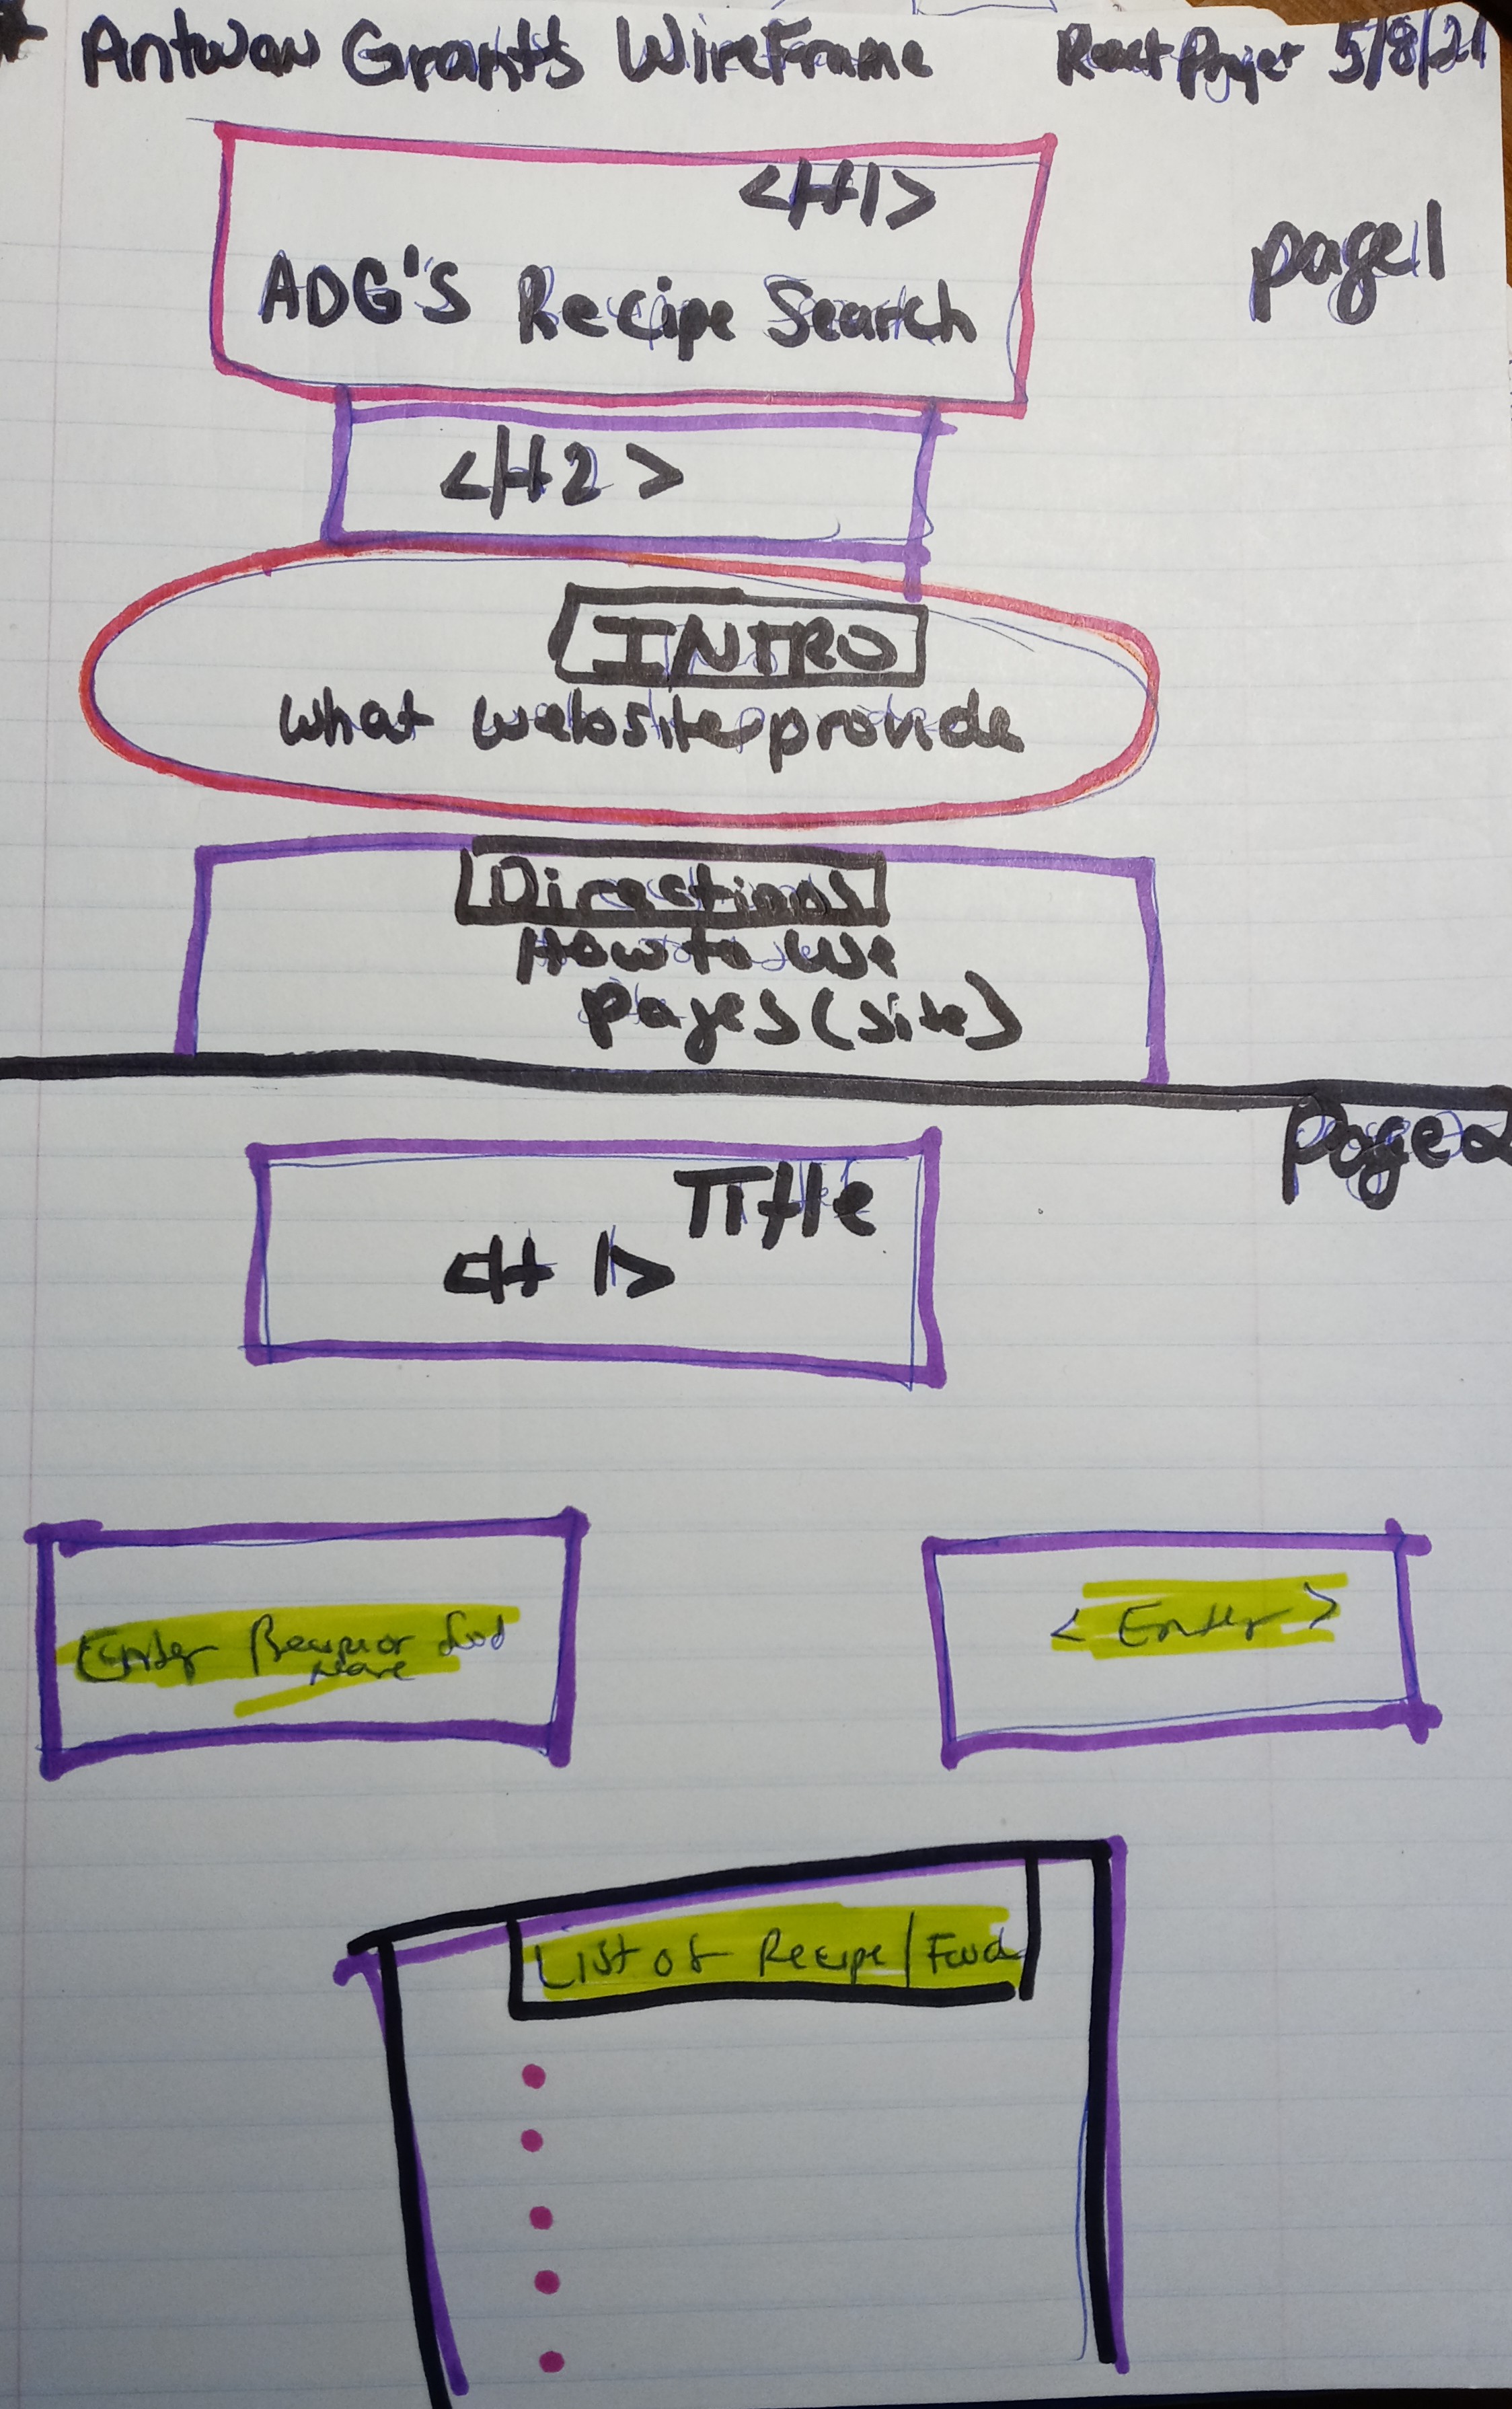 Antwan Grant's WireFrame React Project 5/8/21
<H1>
page 1
ADG'S Recipe Search
<H2>
INTRO
what website provide
Directions
How to use
pages (site)
Page 2
Title
<H 1>
Enter Recipe or food
name
< Enter >
List of Recipe / Food